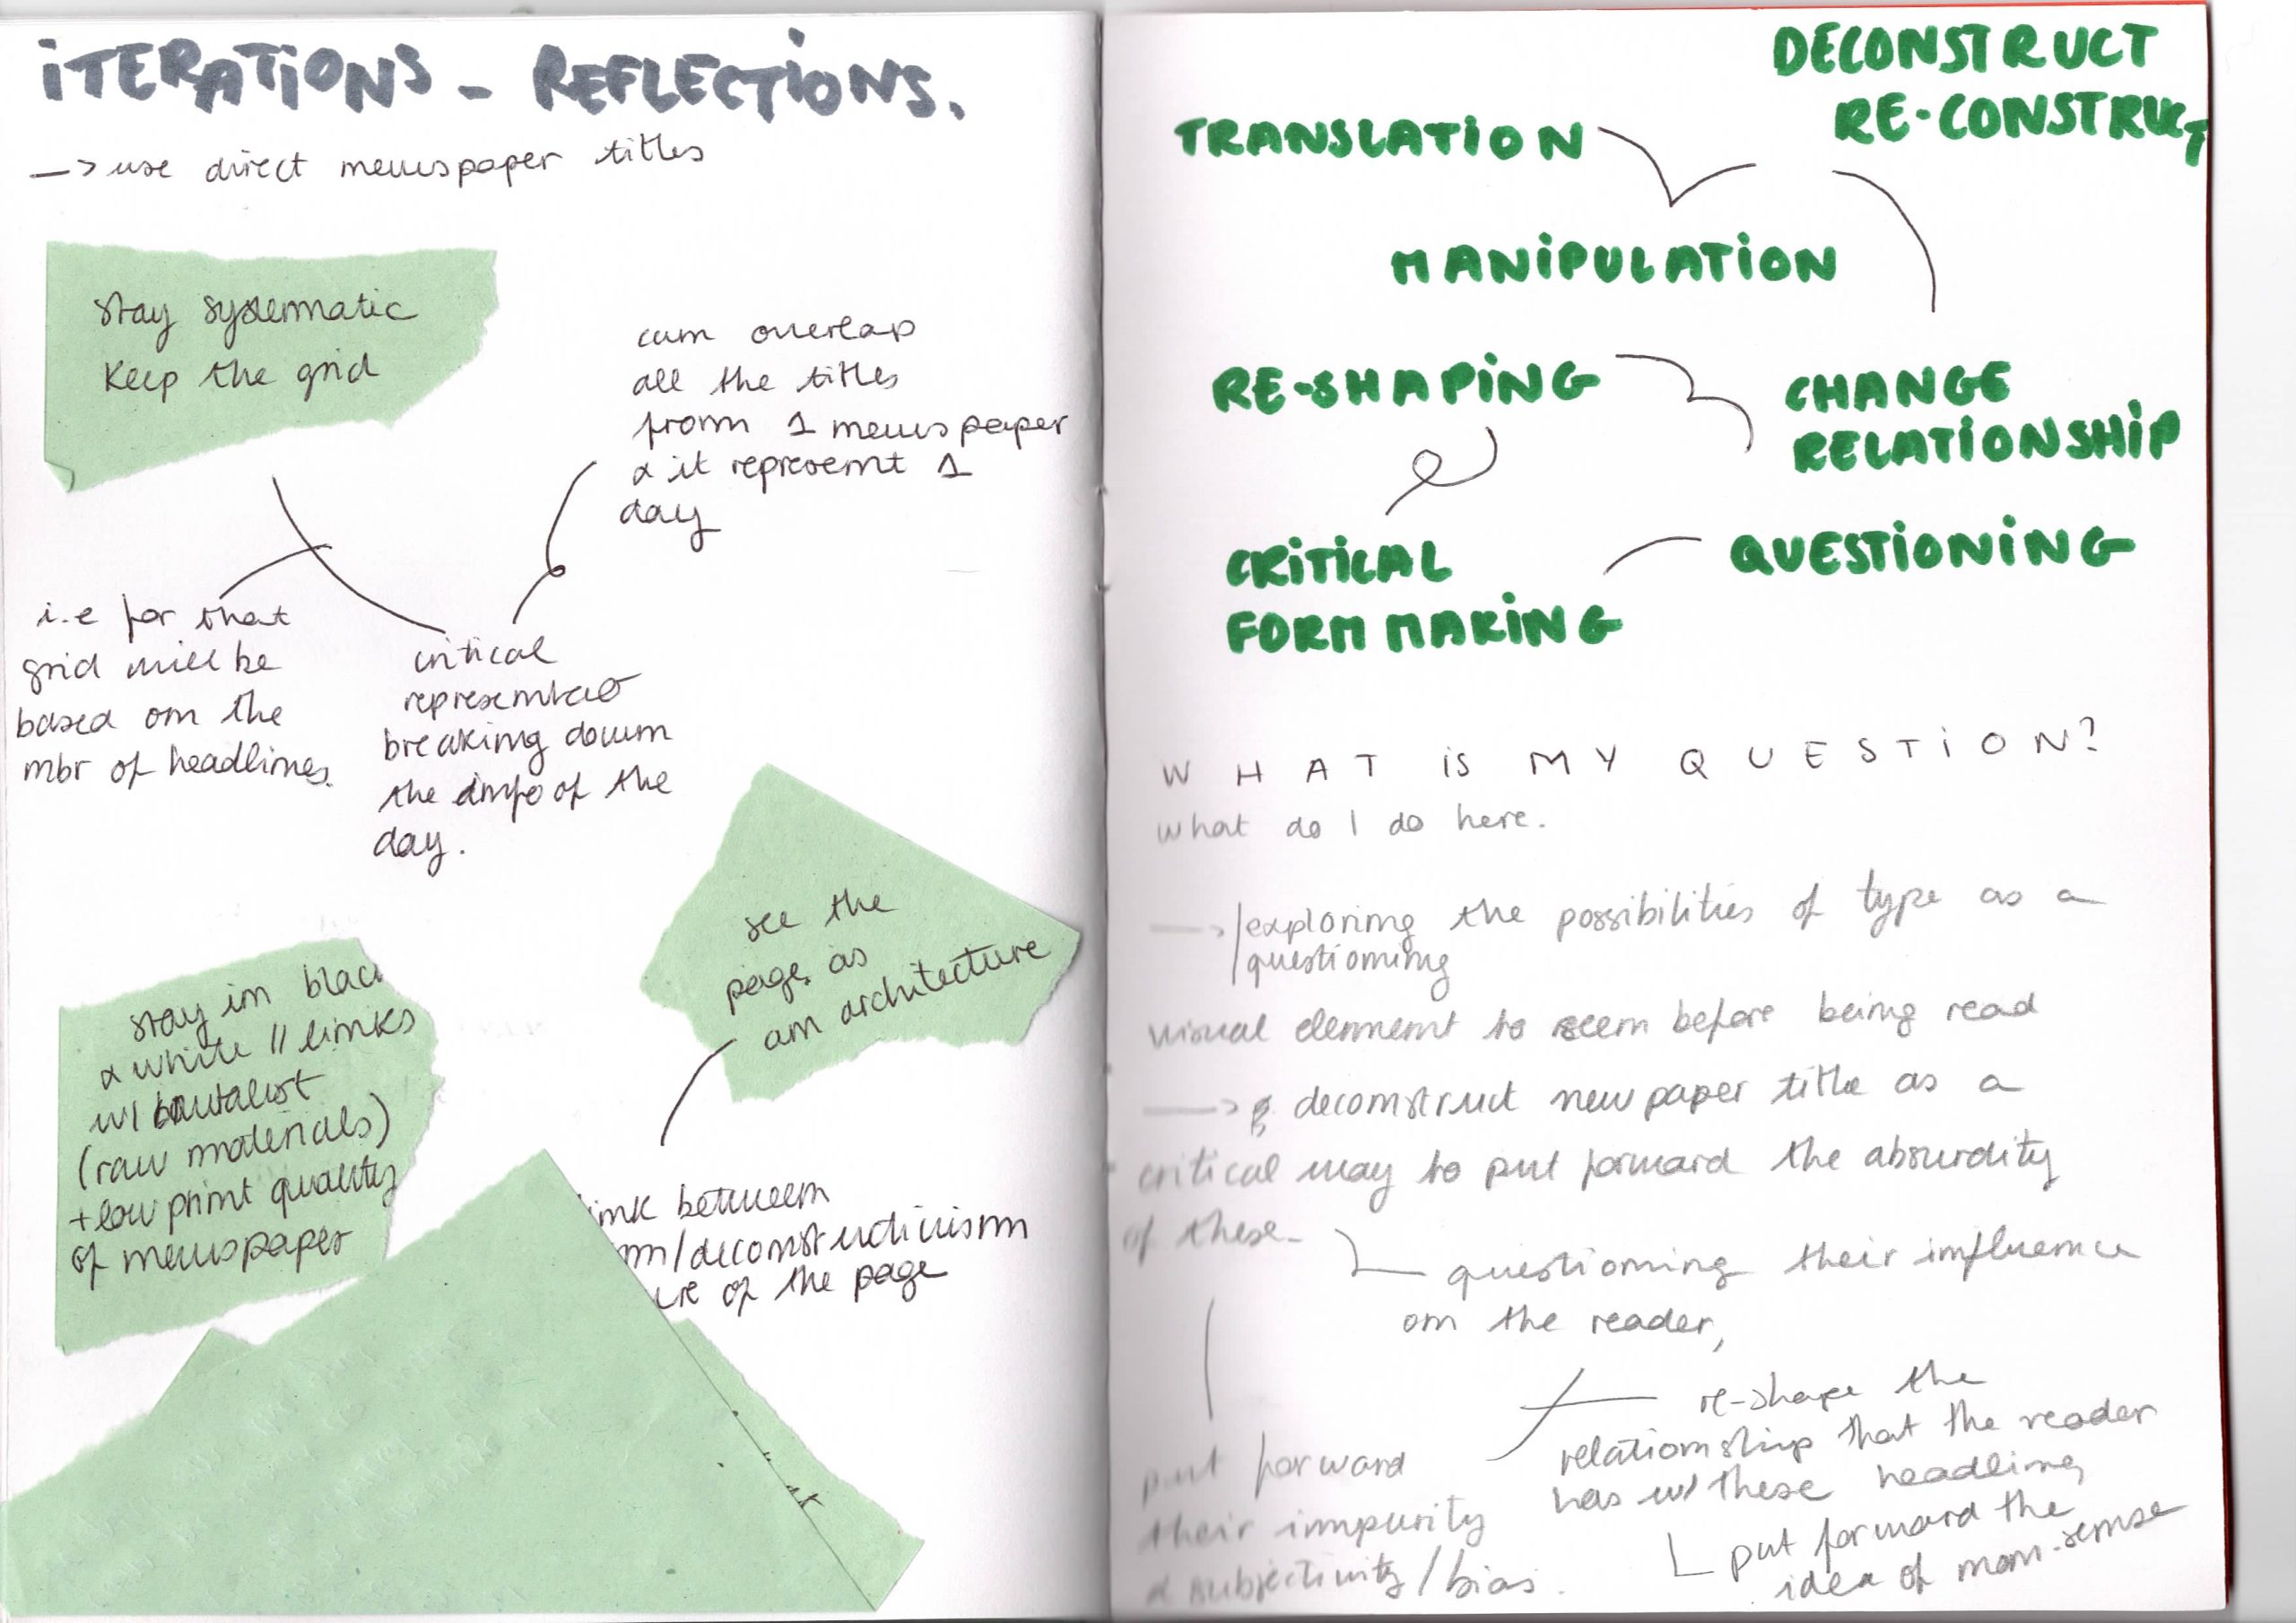 iTERATiONS - REFLECTiONS.
—> use direct newspaper titles
stay systematic
Keep the grid
can overlap
all the titles
from 1 newspaper
& it represent 1
day
i.e for that
grid will be
based on the
nbr of headlines.
critical
breaking down
the info of the
day.
see the
page as
an architecture
stay in blac
& white // links
w/ brutalist
(raw materials)
+ low print quality
of newspaper
ink between
m/deconstructivism
ure of the page
DECONSTRUCT
RE-CONSTRUCT
TRANSLATiON
MANiPULATiON
RE-SHAPiNG
CHANGE
RELATiONSHiP
CRiTiCAL
FORM MAKiNG
QUESTiONiNG
WHAT iS MY QUESTiON?
what do I do here.
—> exploring the possibilities of type as a
questioning
visual element to seem before being read
—> deconstruct new paper title as a
critical way to put forward the absurdity
of these-
questioning their influence
on the reader,
re-shape the
relationship that the reader
has w/ these headling
put forward the
idea of non-sense
put forward
their impurity
& subjectivity/bias.